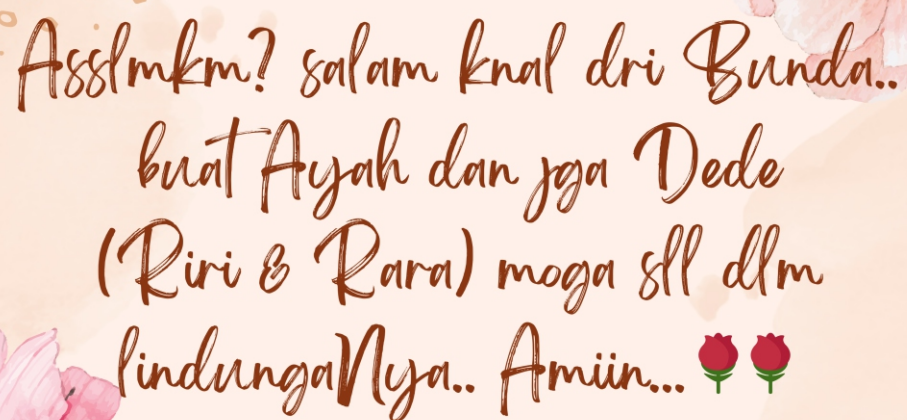 Asslmkm? salam knal dri Bunda..
buat Ayah dan jga Dede
(Riri & Rara) moga sll dlm
lindungaNya.. Amiin... 🌹🌹